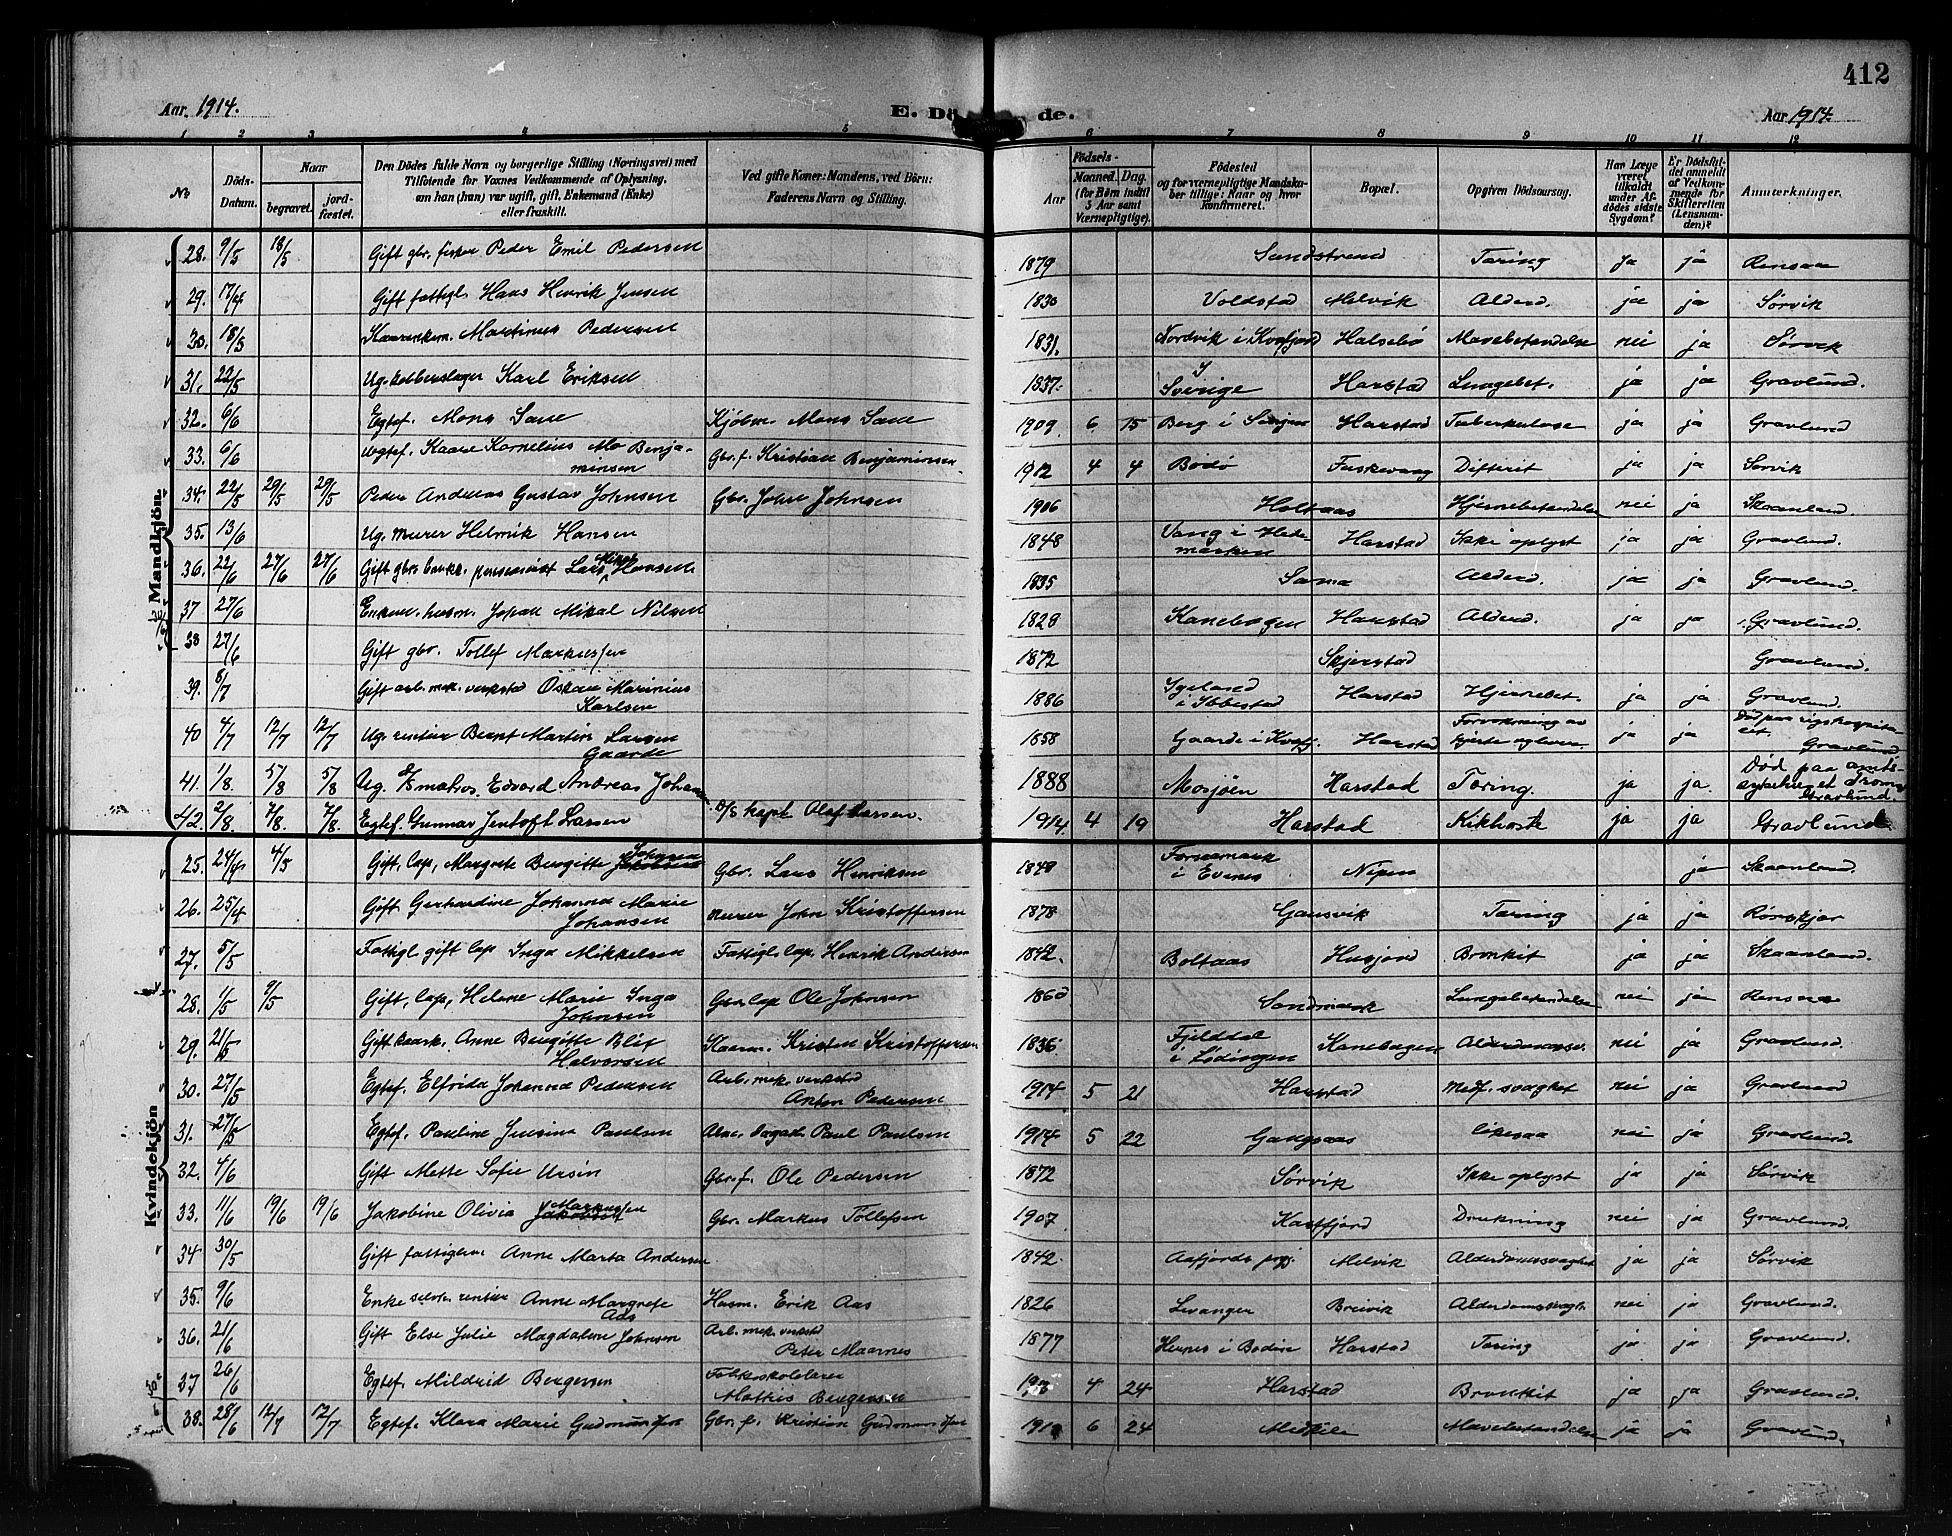 412
Aar 1914.
E. Dö
de.
Aar 1914.
1 2 3 4 5 6 7 8 9 10 11 12
No
Döds-Datum.
Naar
begravet.
jord-fæstet.
Den Dödes fulde Navn og borgerlige Stilling (Næringsvei) med
Tilföiende for Voxnes Vedkommende af Oplysning,
om han (hun) var ugift, gift, Enkemand (Enke)
eller fraskilt.
Ved gifte Koner: Mandens, ved Börn:
Faderens Navn og Stilling.
Födsels-
Aar
Maaned. Dag.
(for Börn indtil
5 Aar samt
Værnepligtige).
Födested
og for værnepligtige Mandska-
ber tillige: Naar og hvor
konfirmeret.
Bopæl.
Opgiven Dödsaarsag.
Har Læge
været
tilkaldt
under Af-
dödes sidste
Sygdom?
Er Dödsfal-
det anmeldt
af Vedkom-
mende for
Skifteretten
(Lensman-
den)?
Anmærkninger.
Mandkjön
28. 9/5 18/5 Gift gbr. fisker Peder Emil Pedersen 1879 Sandstrand Tæring ja ja Rensaa
29. 17/4 Gift fattigl. Hans Henrik Jensen 1830 Voldstad Melvik Alderd. ja ja Sørvik
30. 18/5 Kaarenkem. Martinus Pedersen 1831. Nordvik i Kvæfjord Halsebø Mavebetændelse nei ja Sørvik
31. 22/5 Ug. kobberslager Karl Eriksen 1837. I Sverige Harstad Lungebet. ja ja Gravlund.
32. 6/6 Egtef. Mons Saue Kjøbm. Mons Saue 1909. 6 15 Berg i Senjen Harstad Tuberkulose ja ja Gravlund
33. 6/6 Uegtef. Kaare Kornelius Mo Benja-
minsen Gbr. f. Kristian Benjaminsen 1912 4 4 Bodø Fuskevaag Difterit ja ja Sørvik
34. 22/5 29/5 29/5 Peder Andreas Gustav Johnsen Gbr. John Johnsen 1906 Holtaas Hjernebetændelse nei ja Skaanland.
35. 13/6 Ug. murer Helmik Hansen 1848 Vang i Hede-
marken Harstad Ikke oplyst ja ja Gravlund.
36. 22/6 27/6 27/6 Gift gbr. pensionist Lars Hansen 1835 Sama Alderd. ja ja Gravlund.
37 27/6 Enkem. husm. Johan Mikal Nilsen 1828 Kanebogen Harstad Alderd. ja ja Gravlund.
38 27/6 Gift gbr. Tollef Markussen 1872 Skjerstad Gravlund.
39. 8/7 Gift arb. mek. verksted Oskar Marinius
Karlsen 1886 i Ibbestad Harstad Hjernebet. ja ja Gravlund.
40 4/7 12/7 12/7 Ug. rentier Bernt Martin Larsen
Gaarde 1858 Gaarde i Kvæfj. Harstad Forvokning av
hjerte og lever ja ja Død paa rigshospita-
let. Gravlund
41. 1/8 5/8 5/8 Ug. d/s matros Edvard Andreas Johansen 1888 Mosjøen Harstad Tæring. ja ja. Død paa amts-
sykehuset Tromsø
Gravlund.
42. 2/8 7/8 7/8 Egtef. Gunnar Jentoft Larsen D/S kapt Olaf Larsen. 1914 4 19 Harstad Kikhoste ja ja Gravlund
Kvindekjön
25. 24/4 4/5 Gift, lap, Margrete Bergitte Johnsen Gbr. Lars Henriksen 1848 Forramark
i Evenes Nipen ja Skaanland.
26. 25/4 Gift Gerhardine Johanna Marie
Johansen Murer John Kristoffersen 1878 Gausvik Tæring ja ja Rørskjær
27. 5/5 Fattigl. gift lap Inga Mikkelsen Fattigl. lap. Henrik Andersen 1842. Boltaas Husjord Bronkit ja ja Skaanland.
28. 1/5 9/5 Gift, lap, Helene Marie Inga
Johnsen Gbr. lap Ole Johnsen 1860 Sandmark Lungebetændelse nei ja Rensaa
29. 21/5 Gift kaark. Anne Bergitte Blix
Halvorsen Kaarm. Kristen Kristoffersen 1836 Fjelddal
i Lødingen Kanebogen Alderdomssv. nei ja Gravlund.
30. 27/5 Egtef. Elfrida Johanna Pedersen Arb. mek. verksted
Anton Pedersen 1914 5 21 Harstad Medf. svaghet nei ja Gravlund
31. 27/5 Egtef. Pauline Jensine Paulsen Paul Paulsen 1914 5 22 Gangsaas nei ja Gravlund.
32. 4/6 Gift Mette Sofie Ursin Gbr. f. Ole Pedersen 1872 Sørvik Ikke oplyst ja ja Sørvik
33. 11/6 19/6 19/6 Jakobine Olivia Markussen Gbr. Markus Tollefsen 1907 Kasfjord Drukning nei ja Gravlund.
34 30/5 Gift fattiglem Anne Marta Andersen 1842. Aafjords prgj. Melvik Alderdomssvaghet ja ja Sørvik
35. 9/6 Enke selv. rentier Anne Margrete
Aas Husm. Erik Aas 1826 Levanger Breivik Alderdomssvagh. nei ja Gravlund.
36. 21/6 Gift Else Julie Magdalene Johnsen Arb. mek. verksted
Peter Maarnes 1877 Hernes i Bodin Harstad Tæring ja ja Gravlund.
37 26/6 Egtef. Mildrid Bergersen Folkeskolelærer
Mathis Bergersen 4 24 Harstad Bronkit ja ja Gravlund.
38. 28/6 12/7 12/7 Egtef. Klara Marie Gudmundsen Gbr. f. Kristian Gudmundsen 6 24 Melkilen Mavebetændelse ja ja Gravlund.